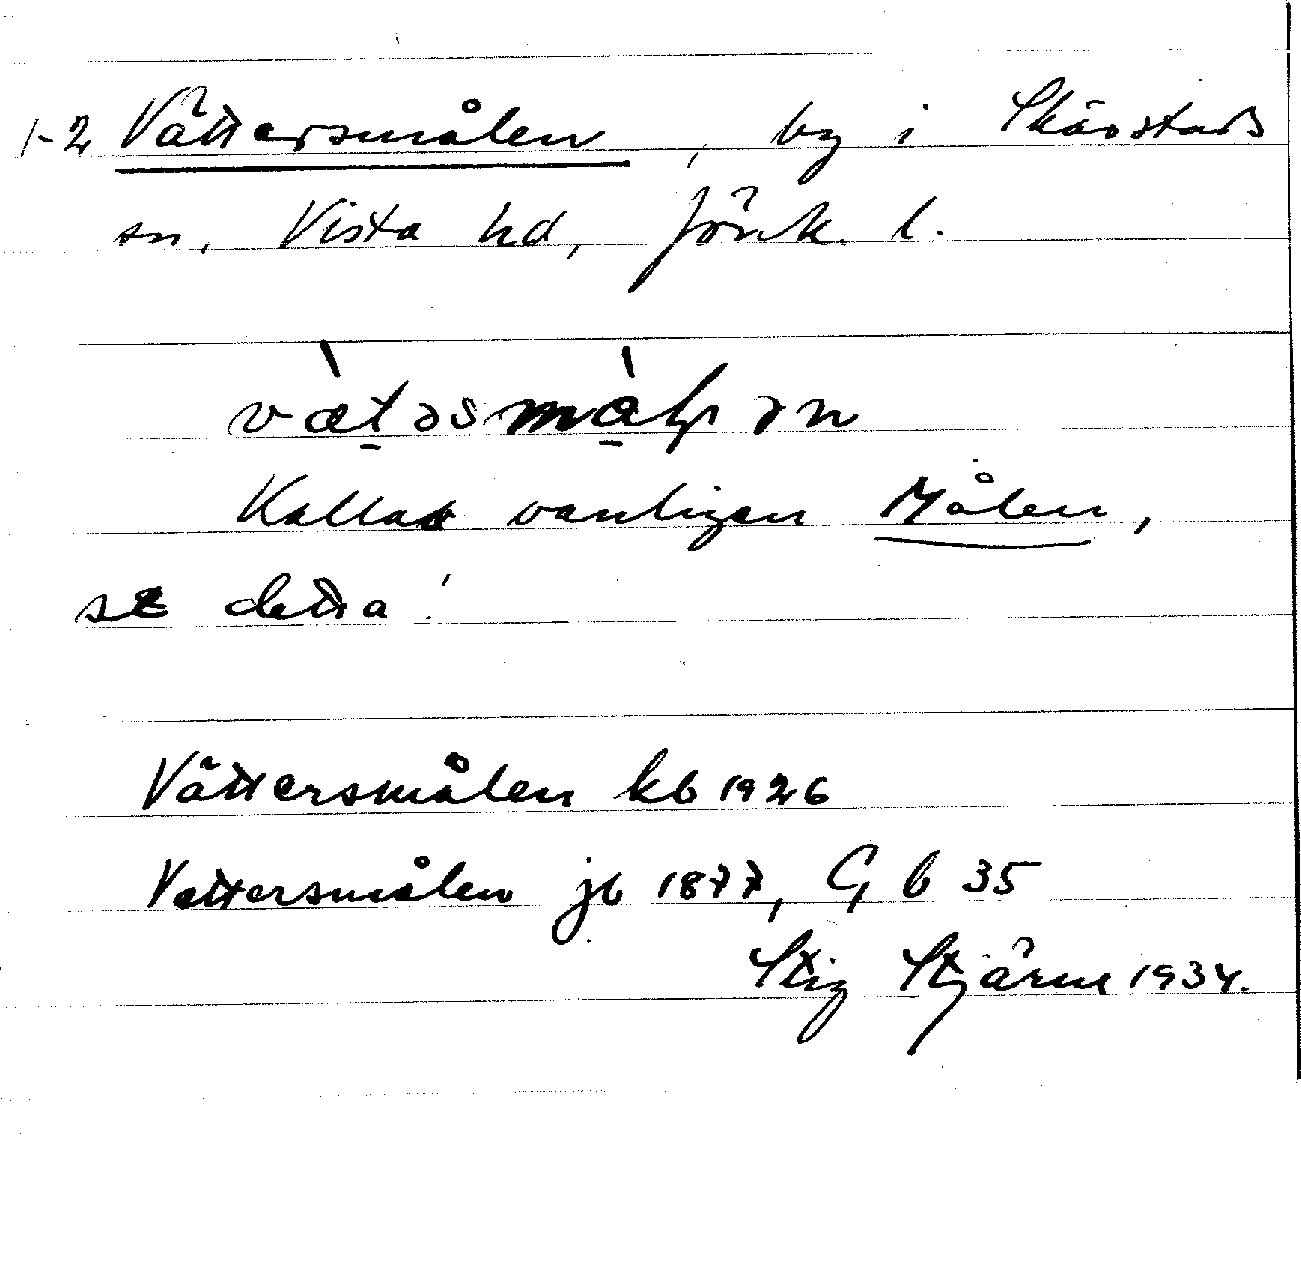 1-2 Vättersmålen, by i Skärstads
sn, Vista hd, Jönk. l.
Kallas vanligen Målen,
se detta!
Vättersmålen kb 1926
Vettersmålen jb 1877, G b 35
Stig Stjärne 1934.